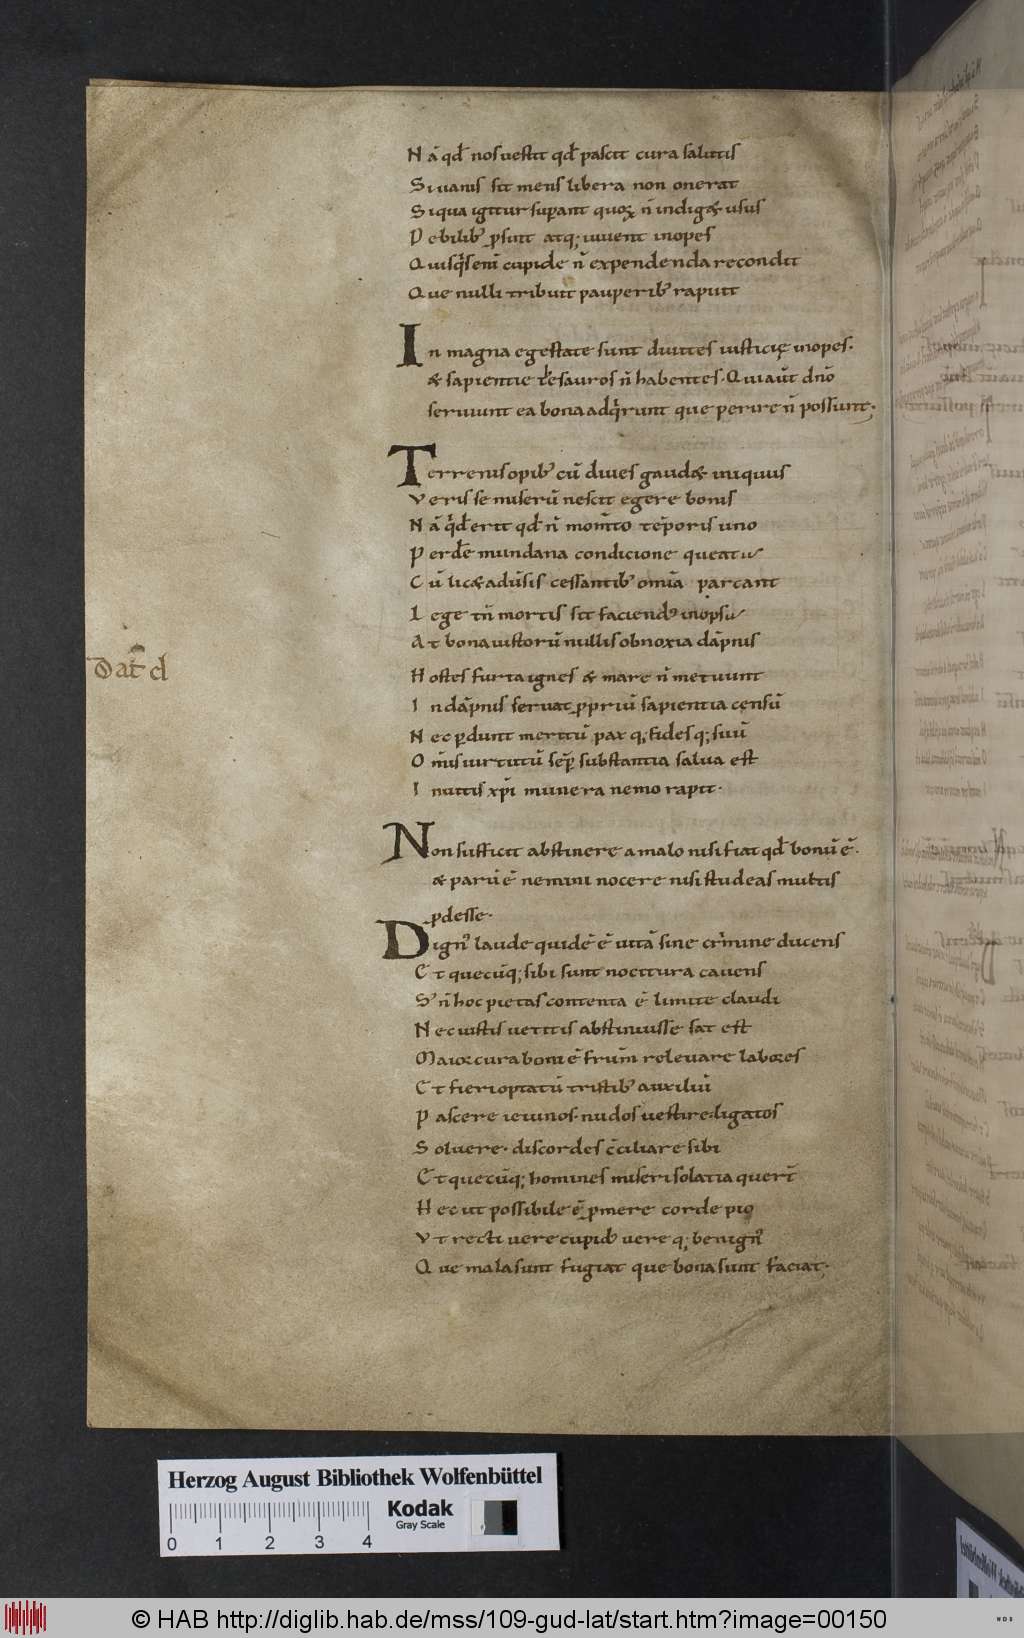 Nā qd̄ nos uestit qd̄ pascit cura salutis
Si uanis sit mens libera non onerat
Siqua igitur supant quoꝝ n̄ indigæ usus
Debilibꝰ psunt atq; iuuent inopes
Quisqͥsem̄ cupide n̄ expendenda recondit
Que nulli tribuit pauperibꝰ rapuit
In magna egestate sunt diuites iusticię inopes·
& sapientie tesauros n̄ habentes· Quiaut̄ dn̄o
seruiunt ea bona adqͥrunt que perire n̄ possunt;
Terrenis opibꝰ cū diues gaudæ iniquus
Veris se miserū nescit egere bonis
Nā qͥd erit qd̄ n̄ mom̄to tēporis uno
Perdē mundana condicione queatur
Cū licæ aduīsis cessantibꝰ om̄ia parcant
Lege tn̄ mortis sit faciendꝰ inops
At bona iustorū nullis obnoxia dāpnis
Dat̄ cl
Hostes furta ignes & mare n̄ metuunt
In dāpnis seruat ppriū sapientia censū
Nec pdunt meritū pax q; fides q; suū
Om̄is uirtutū sep̄ substantia salua est
Inuitis xp̄i munera nemo rapit·
Non sufficit abstinere a malo nisi fiat qd̄ bonū ē·
& parū ē nemini nocere nisi studeas multis
pdesse·
Dignꝰ laude quidē ē uitā sine crͥmine ducens
Et quecūq; sibi sunt nocitura cauens
Sꝫ n̄ hoc pietas contenta ē limite claudi
Nec iustis uetitis abstinuisse sat est
Maior cura boni ē fr̄um releuare labores
Et fieri optatū tristibꝰ auxiliū
Pascere ieiunos· nudos uestire· ligatos
Soluere· discordes c̄ciliare sibi
Et quecūq; homines miseri solatia quer̄t
Hec ut possibile ē pmere corde pio
Vt recti uere cupidꝰ uere q; benignꝰ
Que mala sunt fugiat que bona sunt faciat·
Herzog August Bibliothek Wolfenbüttel
0 1 2 3 4
Kodak
Gray Scale
© HAB http://diglib.hab.de/mss/109-gud-lat/start.htm?image=00150